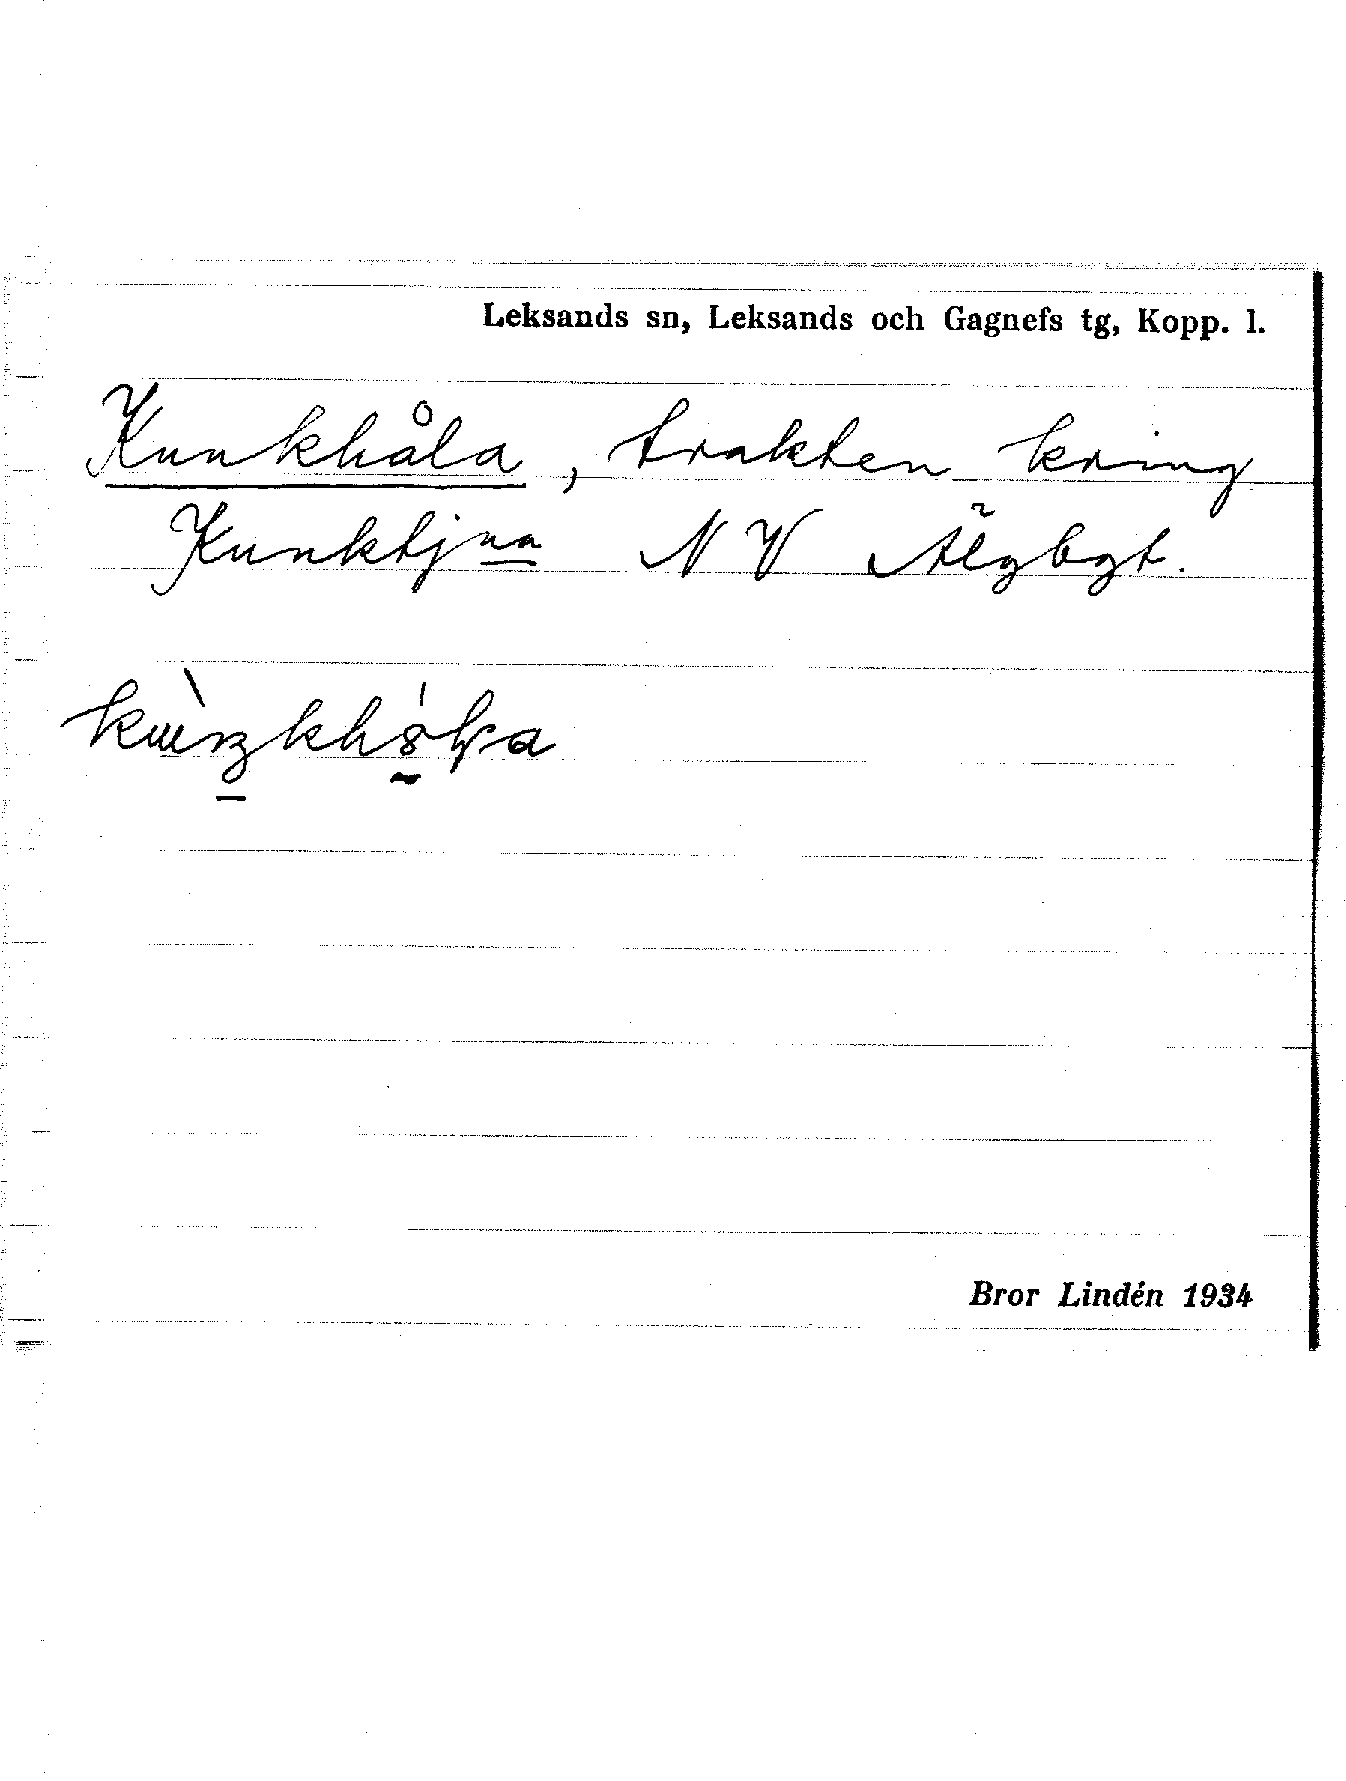 Leksands sn, Leksands och Gagnefs tg, Kopp. l.
Kunkhåla, trakten kring
Kunktjna NV Älgbgt.
Bror Lindén 1934